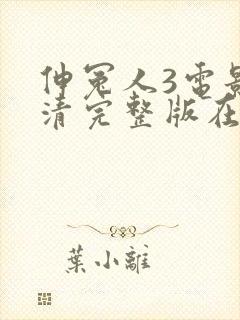 伸冤人3电影
清完整版在
葉小離